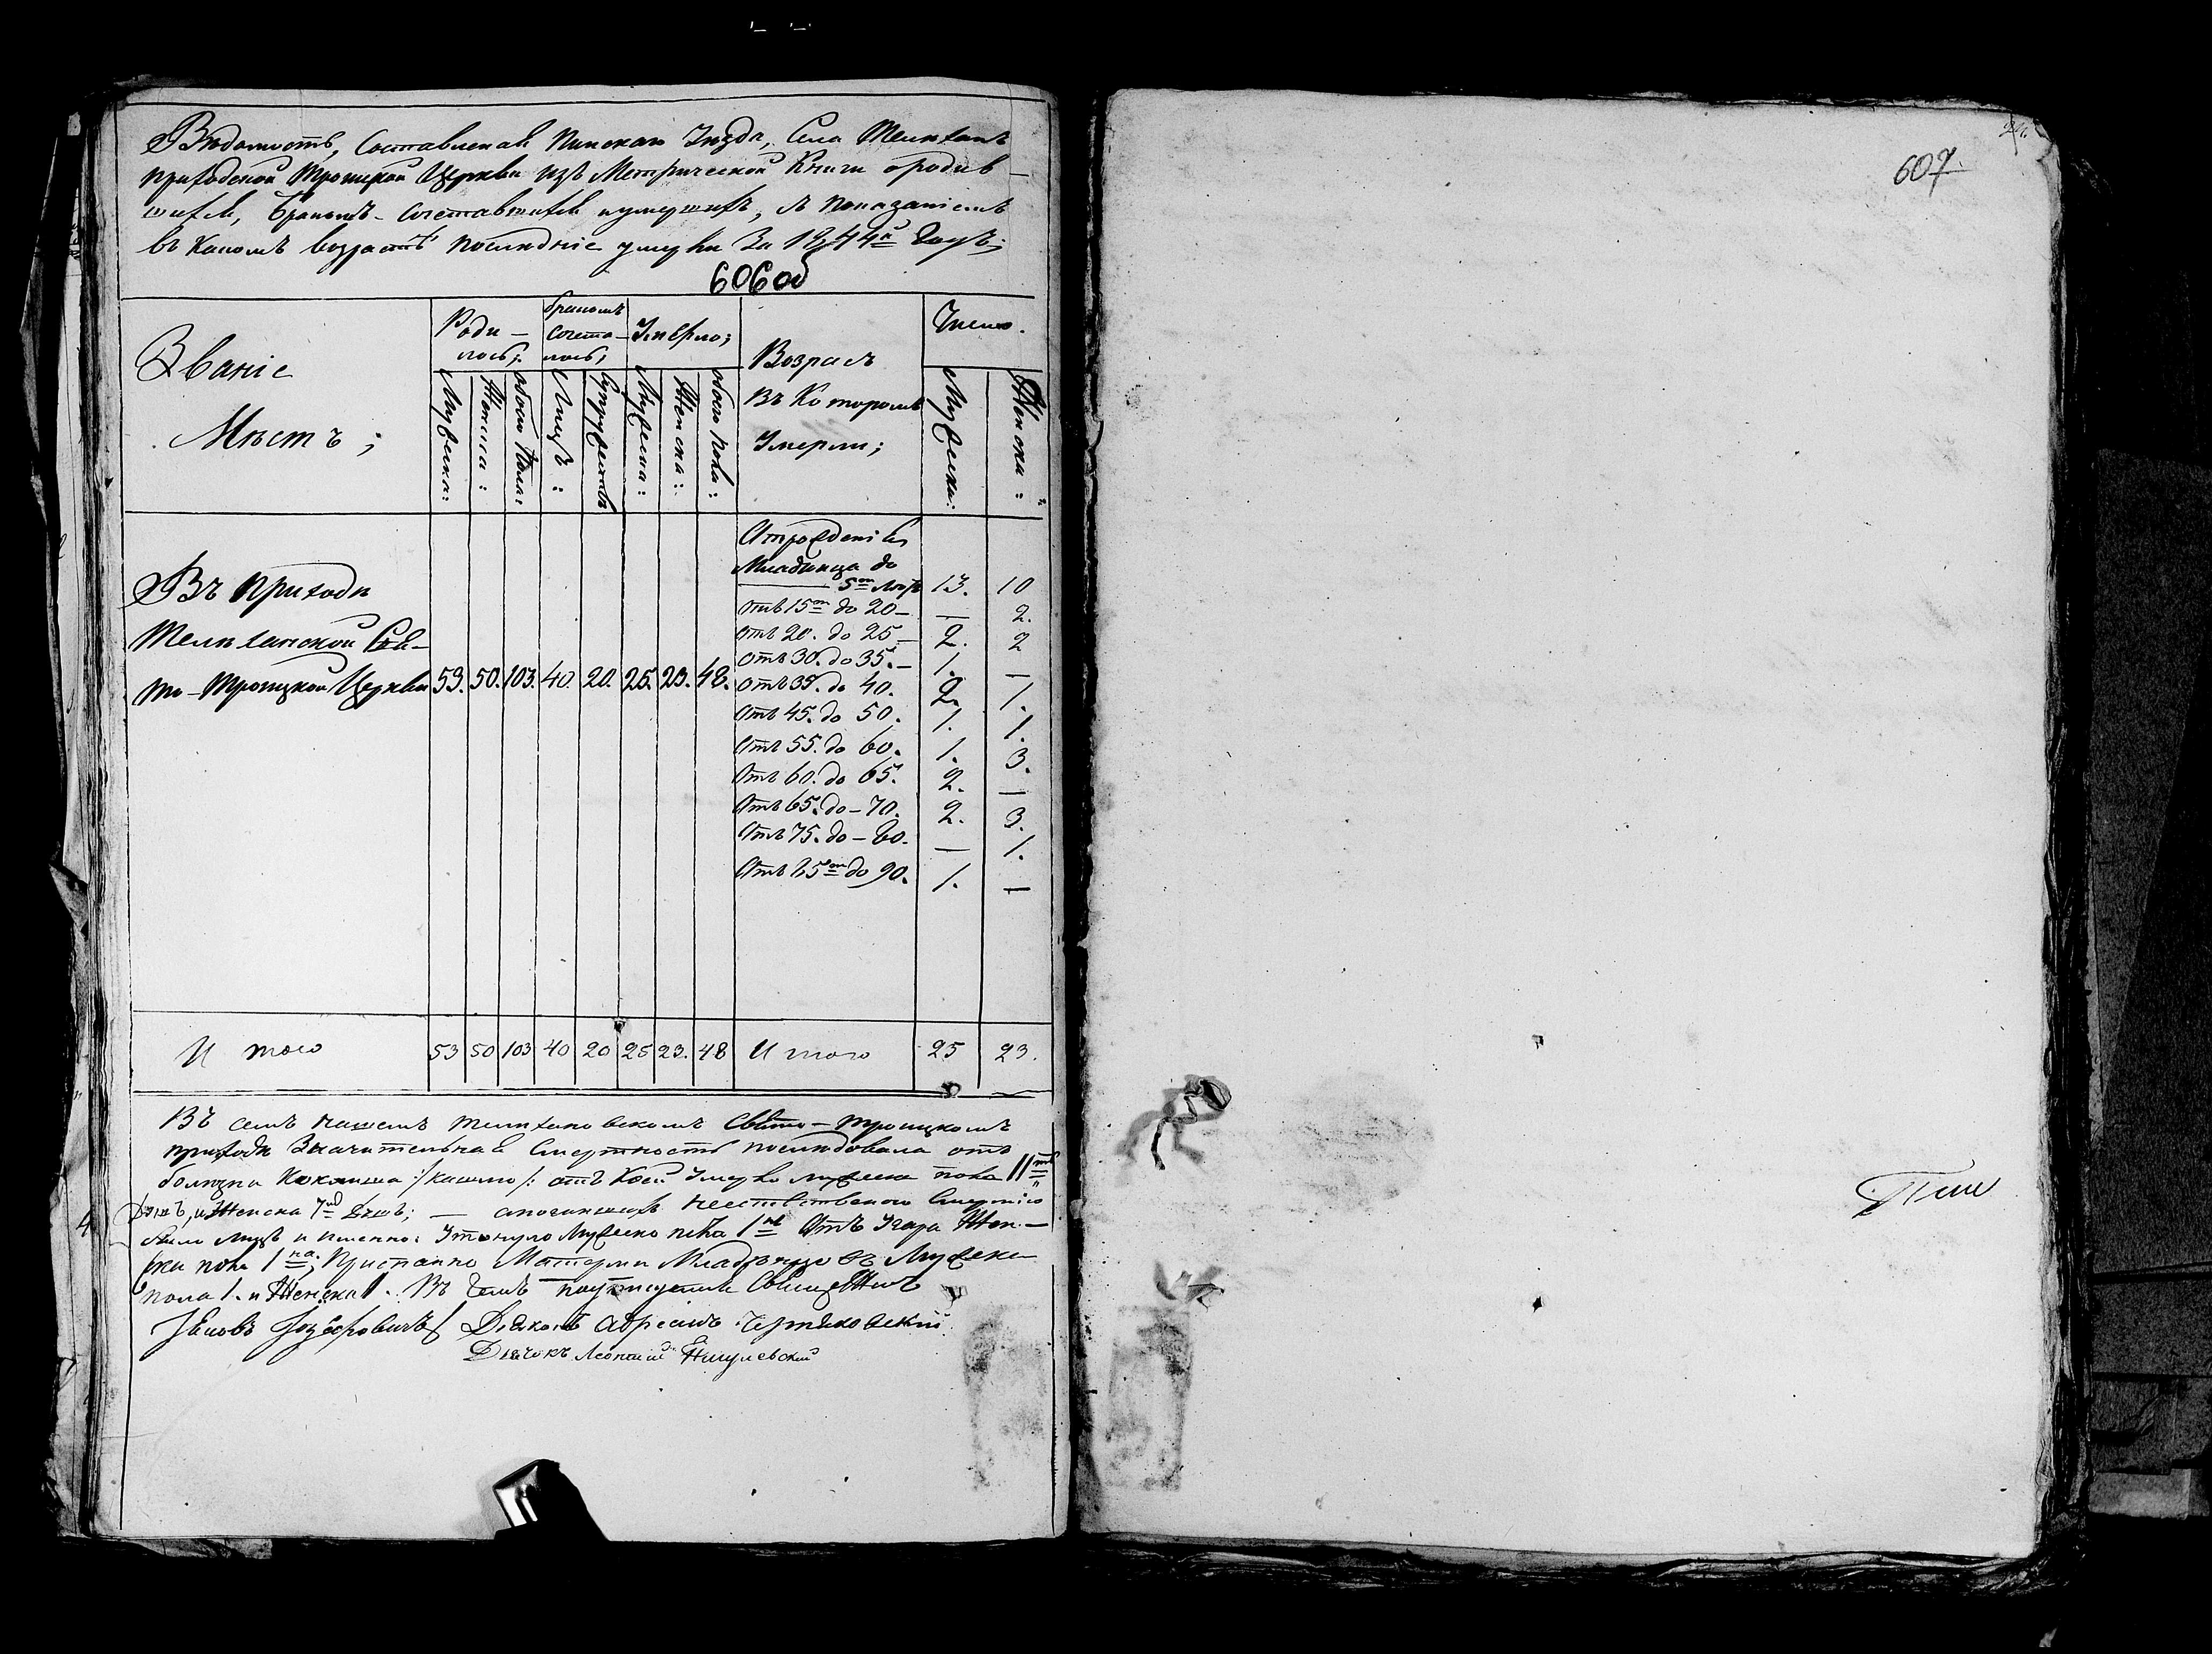 Вѣдомость, Составленая Пинскаго Уѣзда, Села Телеханъ
приходской Троицкой Церкви изъ Метрической Книги о родив-
шихся, бракомъ-сочетавшихся и умершихъ, съ показаніемъ
въ какомъ возрастѣ послѣдніе умерли За 1844й Годъ;
606об
Званіе
Мѣстъ;
Роди-
лось;
бракомъ
сочета-
лось;
Умерло;
Возрастъ
въ Которомъ
Умерли;
Число.
Мужеска:
Женска:
обоего Пола:
Лицъ:
Супружествъ
Мужеска:
Женска:
обоего пола:
Мужеска:
Женска:
Въ приходѣ
Телеханской Свя-
то-Троицкой Церкви 53. 50. 103. 40. 20. 25. 23. 48.
Отрожденія
Младенца до
5ти лѣтъ 13. 10
Отъ 15ти до 20 — — 2.
Отъ 20. до 25 — 2. 2
Отъ 30. до 35. — 1. —
Отъ 35. до 40. 2. 1.
Отъ 45. до 50. 1. 1.
Отъ 55. до 60. 1. 3.
Отъ 60. до 65. 2. —
Отъ 65. до — 70. 2. 3.
Отъ 75. до — 80. — 1.
Отъ 85ти до 90. 1. —
И того 53 50 103 40 20 25 23. 48 И того 25 23.
Въ семъ нашемъ Телехановскомъ Свято-Троицкомъ
приходѣ Значительная Смертность послѣдовала отъ
болѣзни Коклюша /: кашлю /: отъ коей Умерло мужеска пола 11ть
Душъ, и Женска 7мъ Душъ; — скончавшихъ неестественою Смертію
4
было лицъ и именно: Утонуло Мужеско пола 1нъ Отъ Угара Жен-
ска пола 1на; Приспанно Матерми Младенцовъ Мужеска
пола 1. и Женска 1. Въ чемъ Священникъ
Дьячокъ Леонтій
607